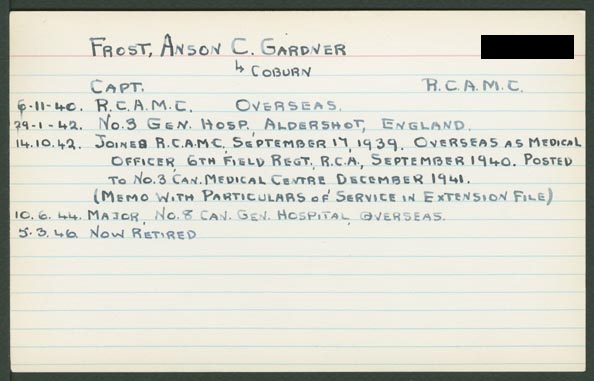 FROST, ANSON C. GARDNER
↳ COBURN
CAPT. R.C.A.M.C.
6-11-40. R.C.A.M.C. OVERSEAS.
29-1-42. NO.3 GEN. HOSP., ALDERSHOT, ENGLAND.
14.10.42. JOINED R.C.A.M.C, SEPTEMBER 17, 1939. OVERSEAS AS MEDICAL
OFFICER, 6TH FIELD REGT., R.C.A., SEPTEMBER 1940. POSTED
TO NO.3 CAN. MEDICAL CENTRE DECEMBER 1941.
(MEMO WITH PARTICULARS OF SERVICE IN EXTENSION FILE)
10.6.44. MAJOR, NO.8 CAN. GEN. HOSPITAL, OVERSEAS.
5.3.46. NOW RETIRED